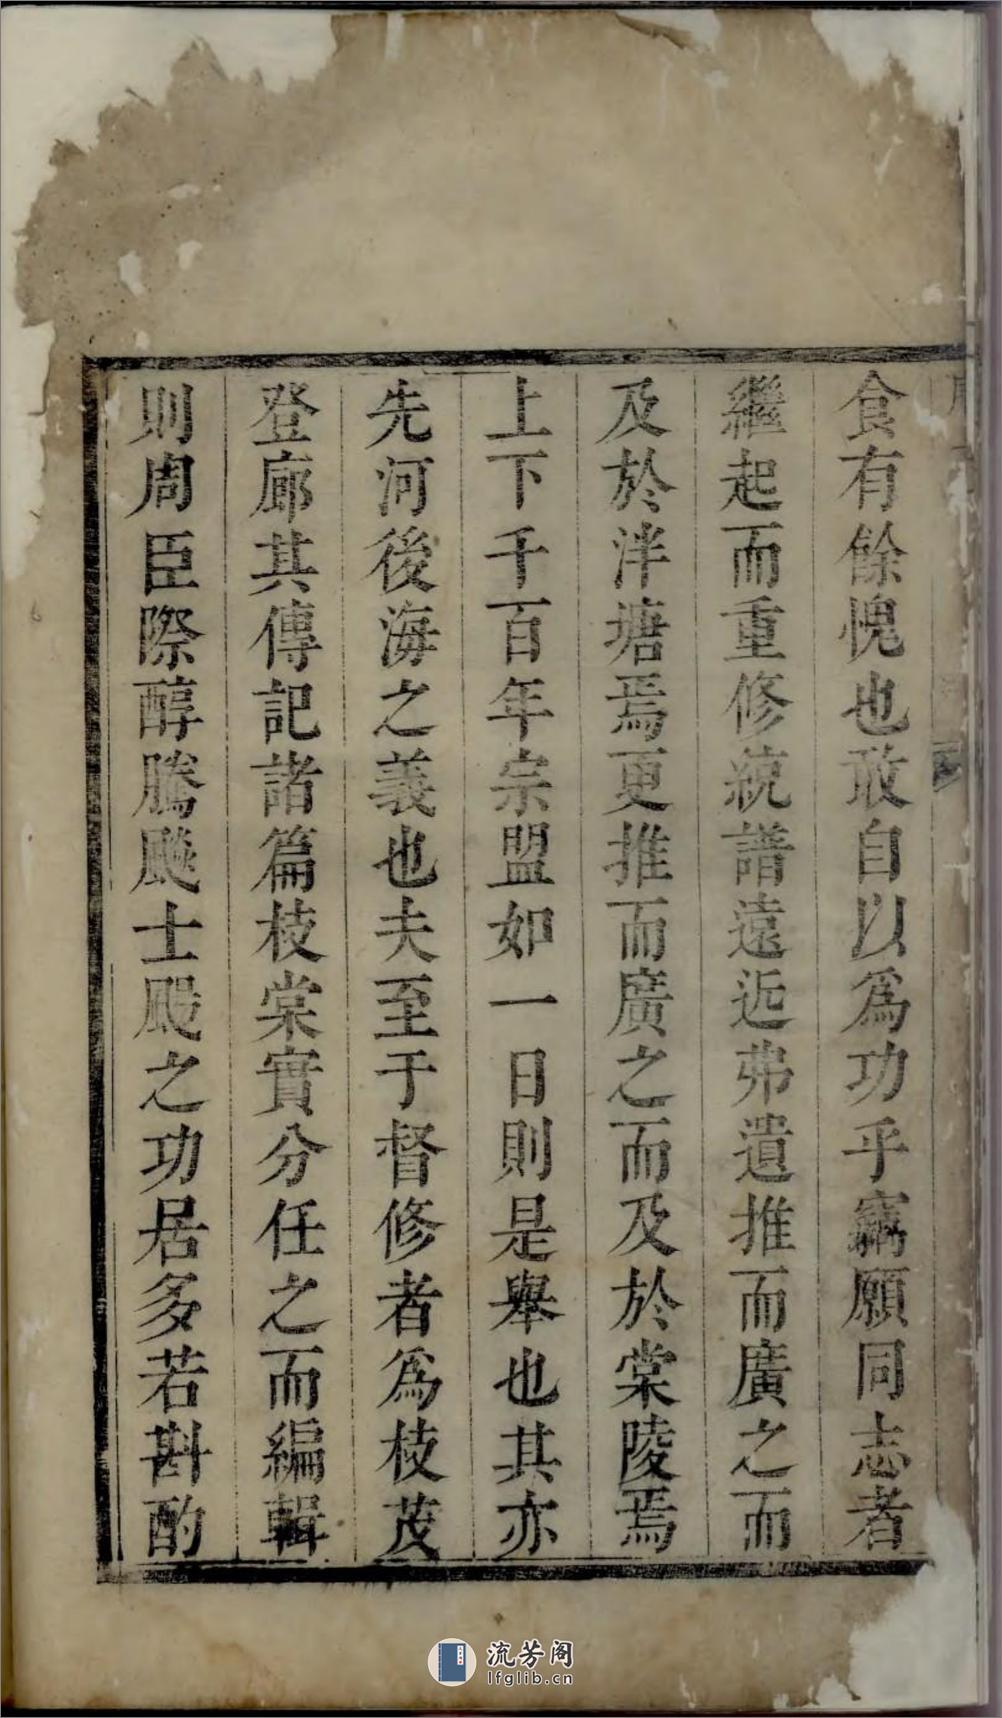 食有餘愧也敢自以爲功乎竊願同志者
繼起而重修統譜遠近弗遺推而廣之而
及於泮塘焉更推而廣之而及於棠陵焉
上下千百年宗盟如一日則是舉也其亦
先河後海之義也夫至于督修者爲枝茂
登廊其傳記諸篇枝棠實分任之而編輯
則周臣際醇騰飈士颺之功居多若斟酌
流芳阁
lfglib.cn